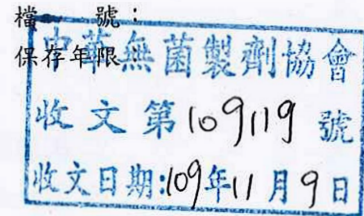 檔　　號：
保存年限：
中華無菌製劑協會
收文第109119號
收文日期:109年11月9日